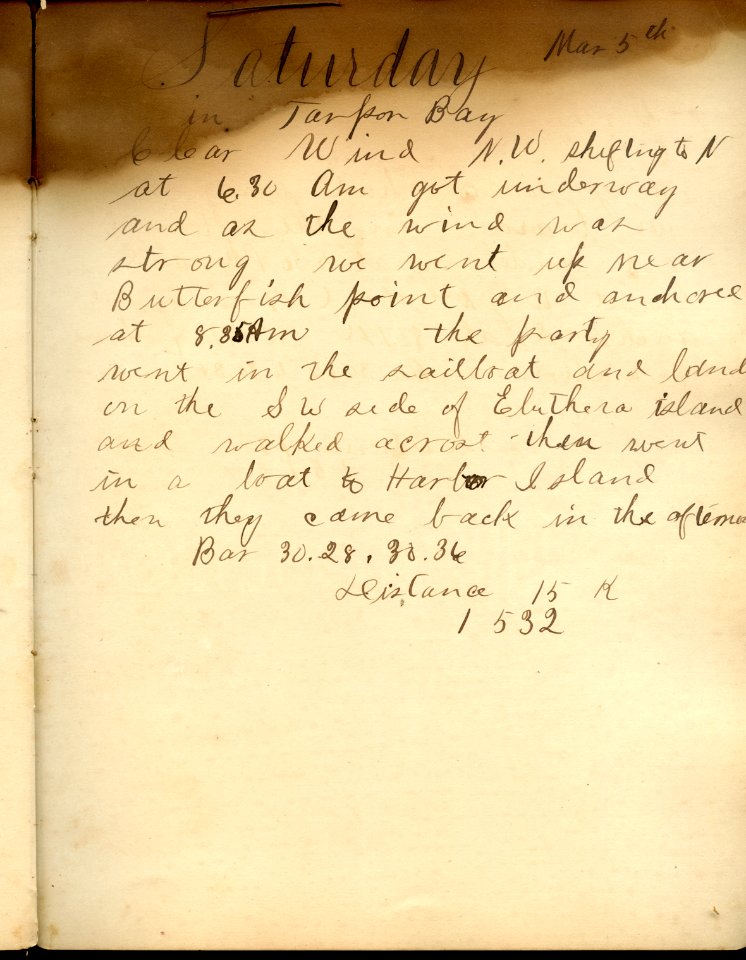 Saturday Mar 5th
in Tarpon Bay
Clear Wind N.W. shifting to N
at 6.30 Am got underway
and as the wind was
strong we went up near
Butterfish point and anchored
at 8.35 Am the party
went in the sailboat and land
on the SW side of Eluthera island
and walked acrost then went
in a boat to Harbor Island
then they came back in the afternoon
Bar 30.28, 30.36
Distance 15 K
1 532